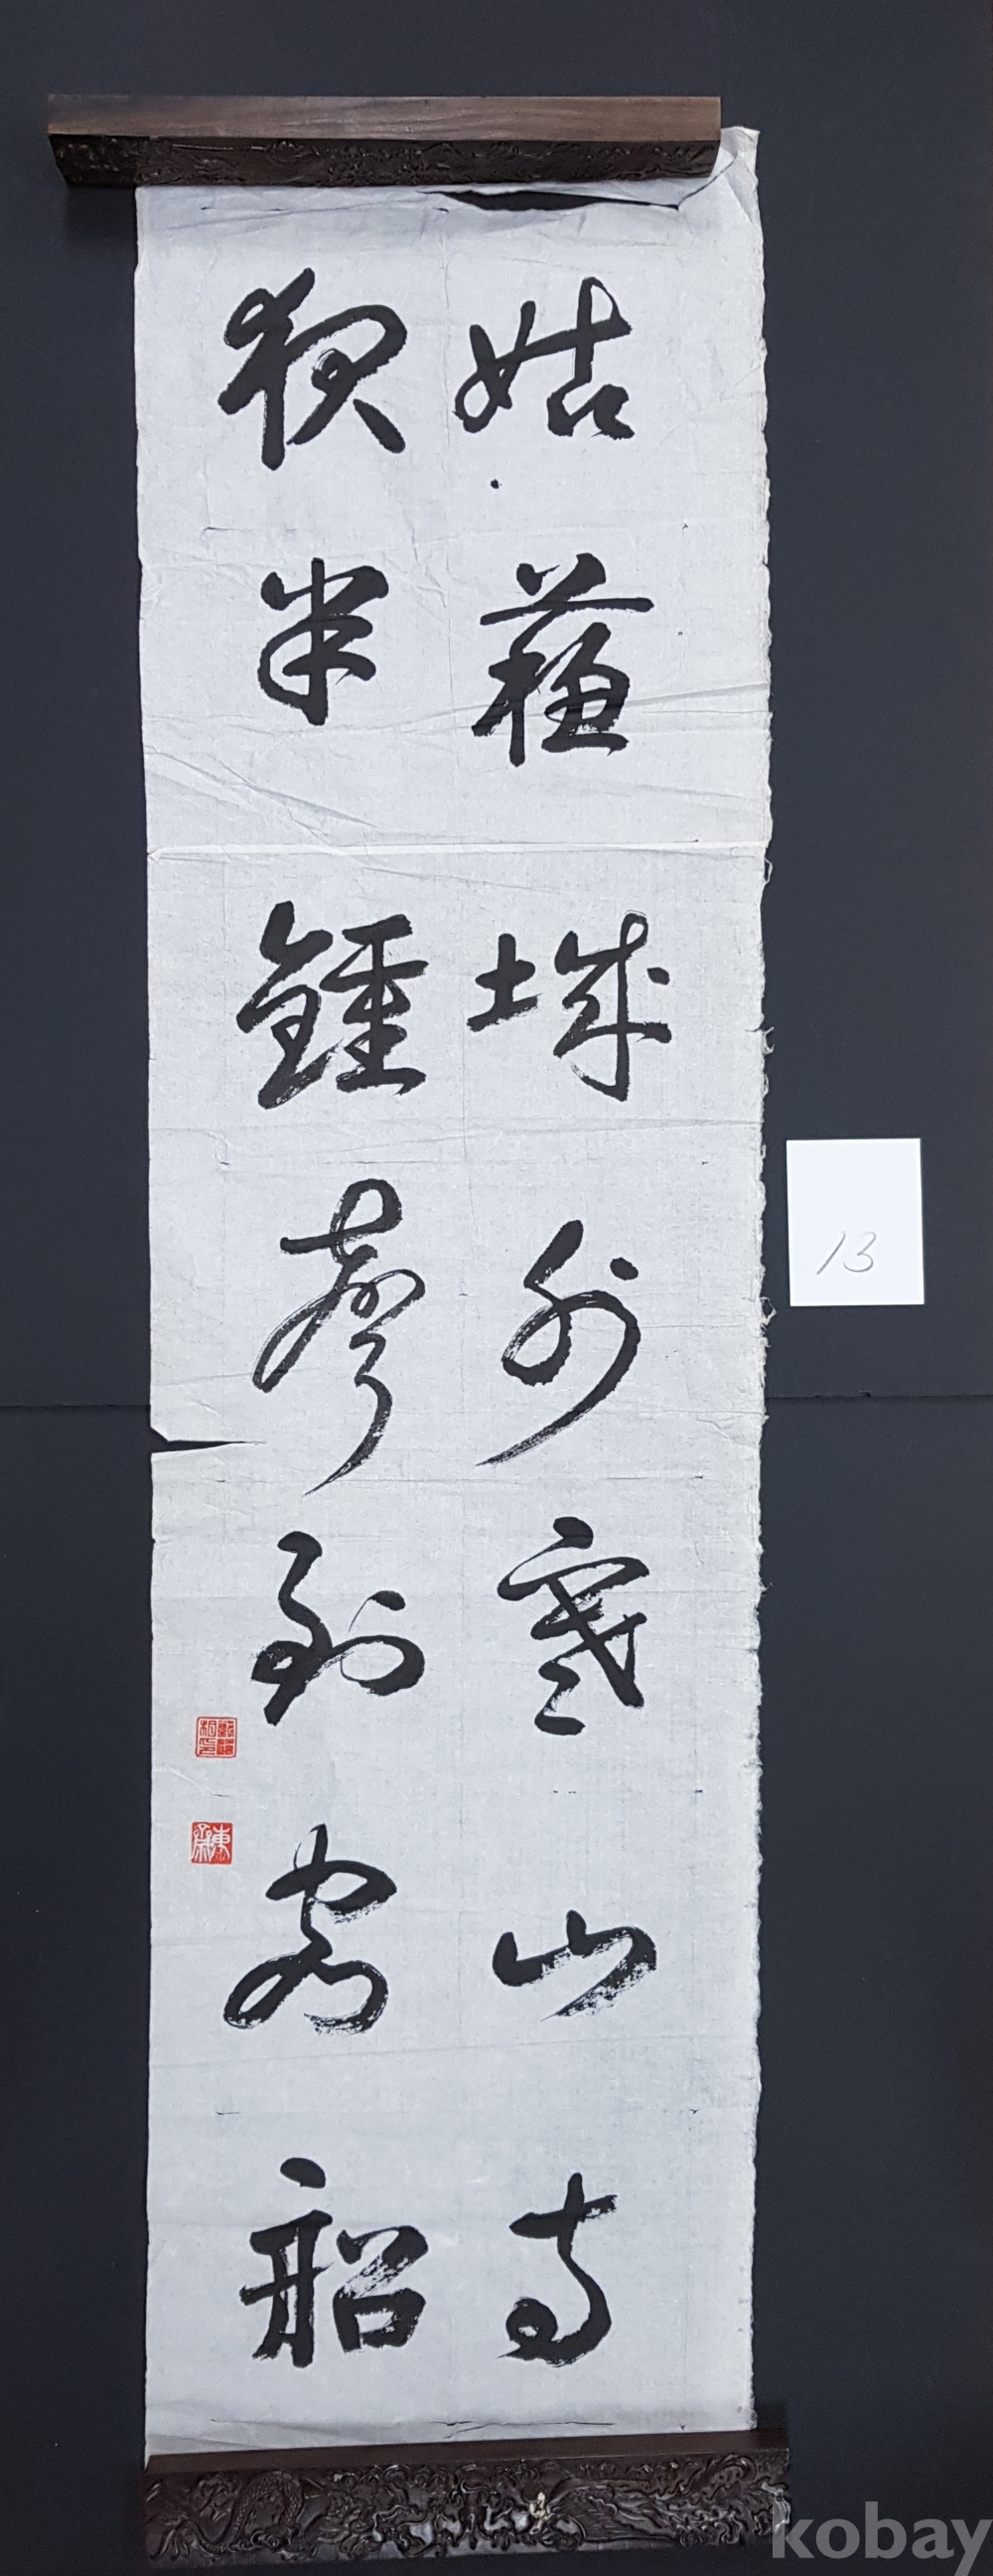 姑蘇城外寒山寺
夜半鍾聲到客船
東齋
13
kobay